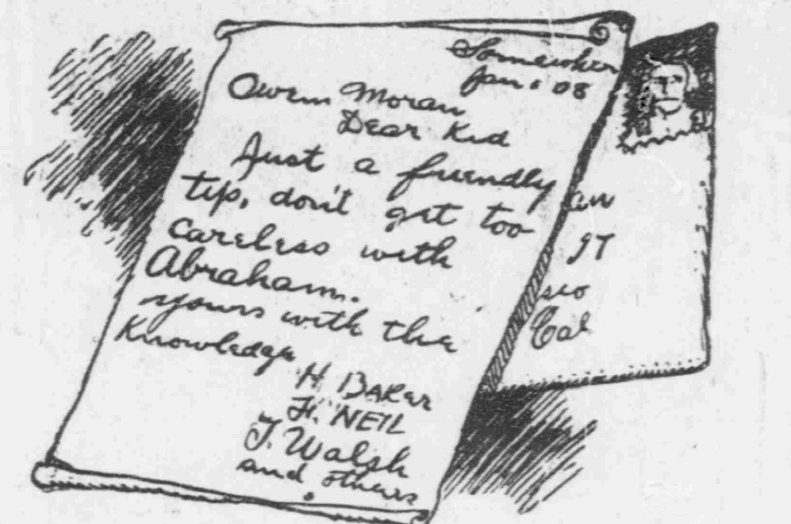 Somewher
Jan. 08
Owen Moran
Dear Kid
Just a friendly
tip, don't get too
careless with
Abraham.
yours with the
Knowledge
H BAKER
F. NEIL
J. Walsh
and others
aw
ST
sco
Cal